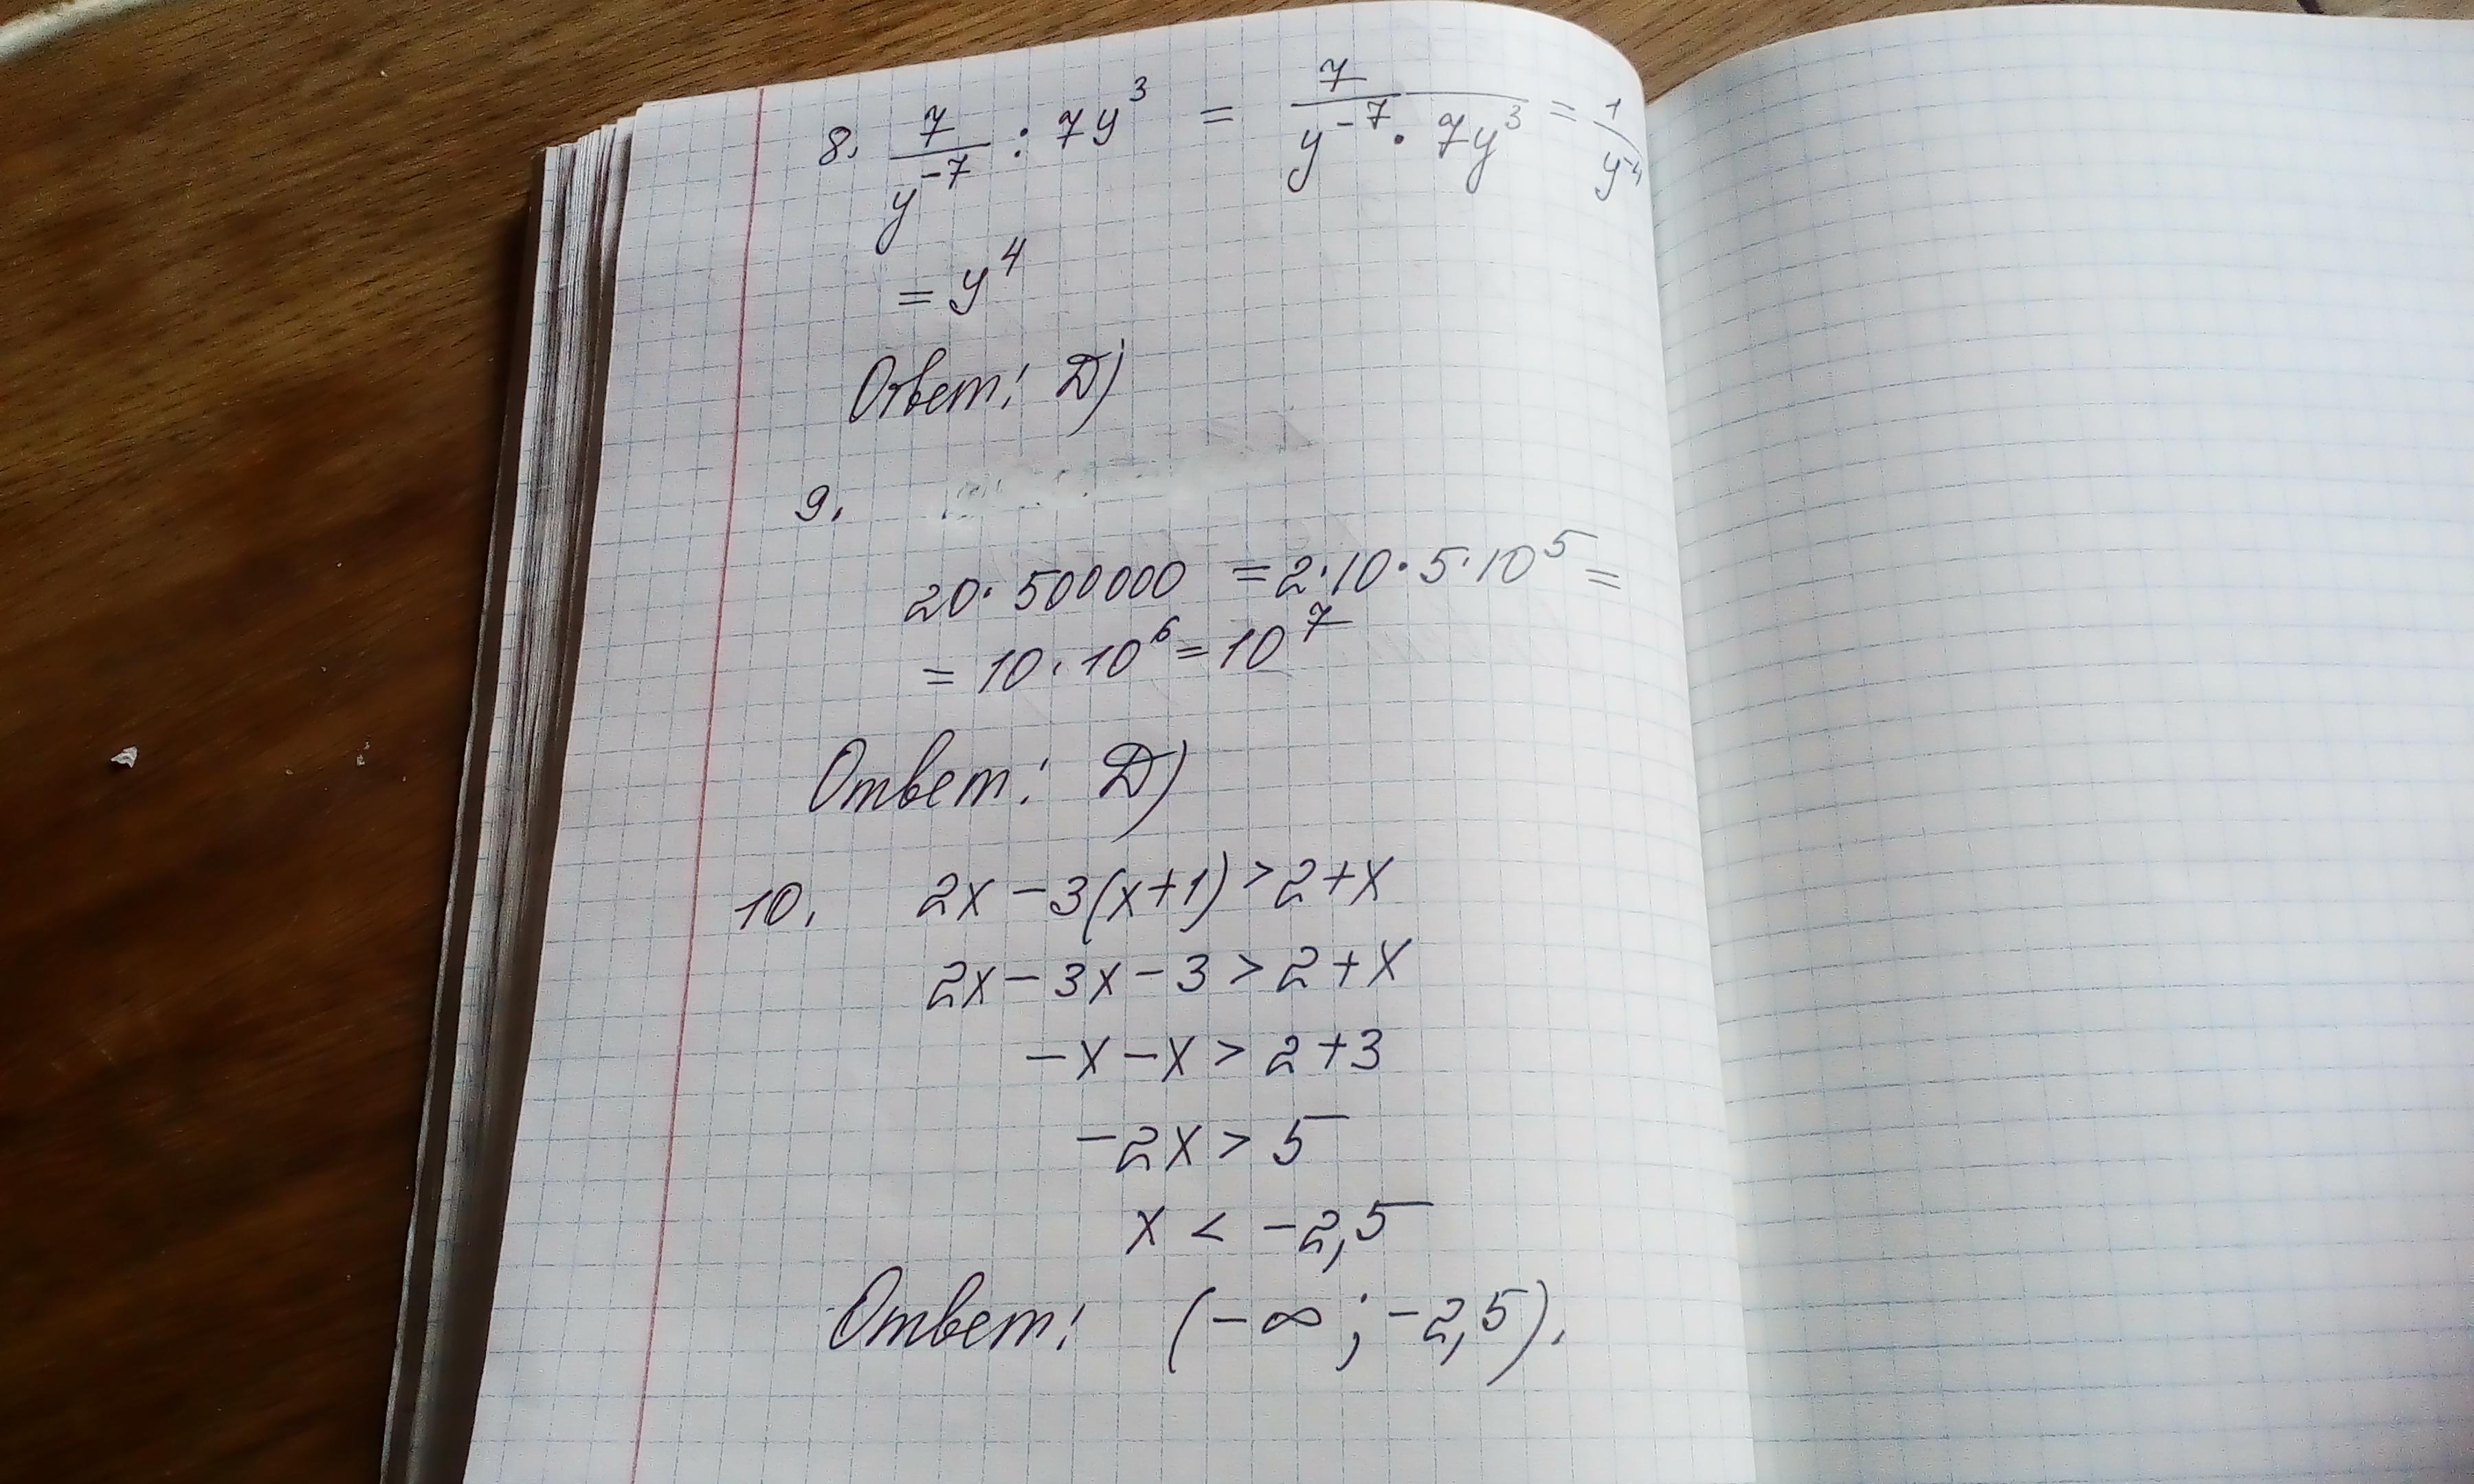 8. 7/y⁻⁷ : 7y³ = 7/(y⁻⁷ · 7y³) = 1/y⁻⁴
= y⁴
Ответ: D)
9.
20 · 500000 = 2 · 10 · 5 · 10⁵ =
= 10 · 10⁶ = 10⁷
Ответ: D)
10. 2x − 3(x+1) > 2+x
2x − 3x − 3 > 2 + x
−x − x > 2 + 3
−2x > 5
x < −2,5
Ответ: (−∞; −2,5).